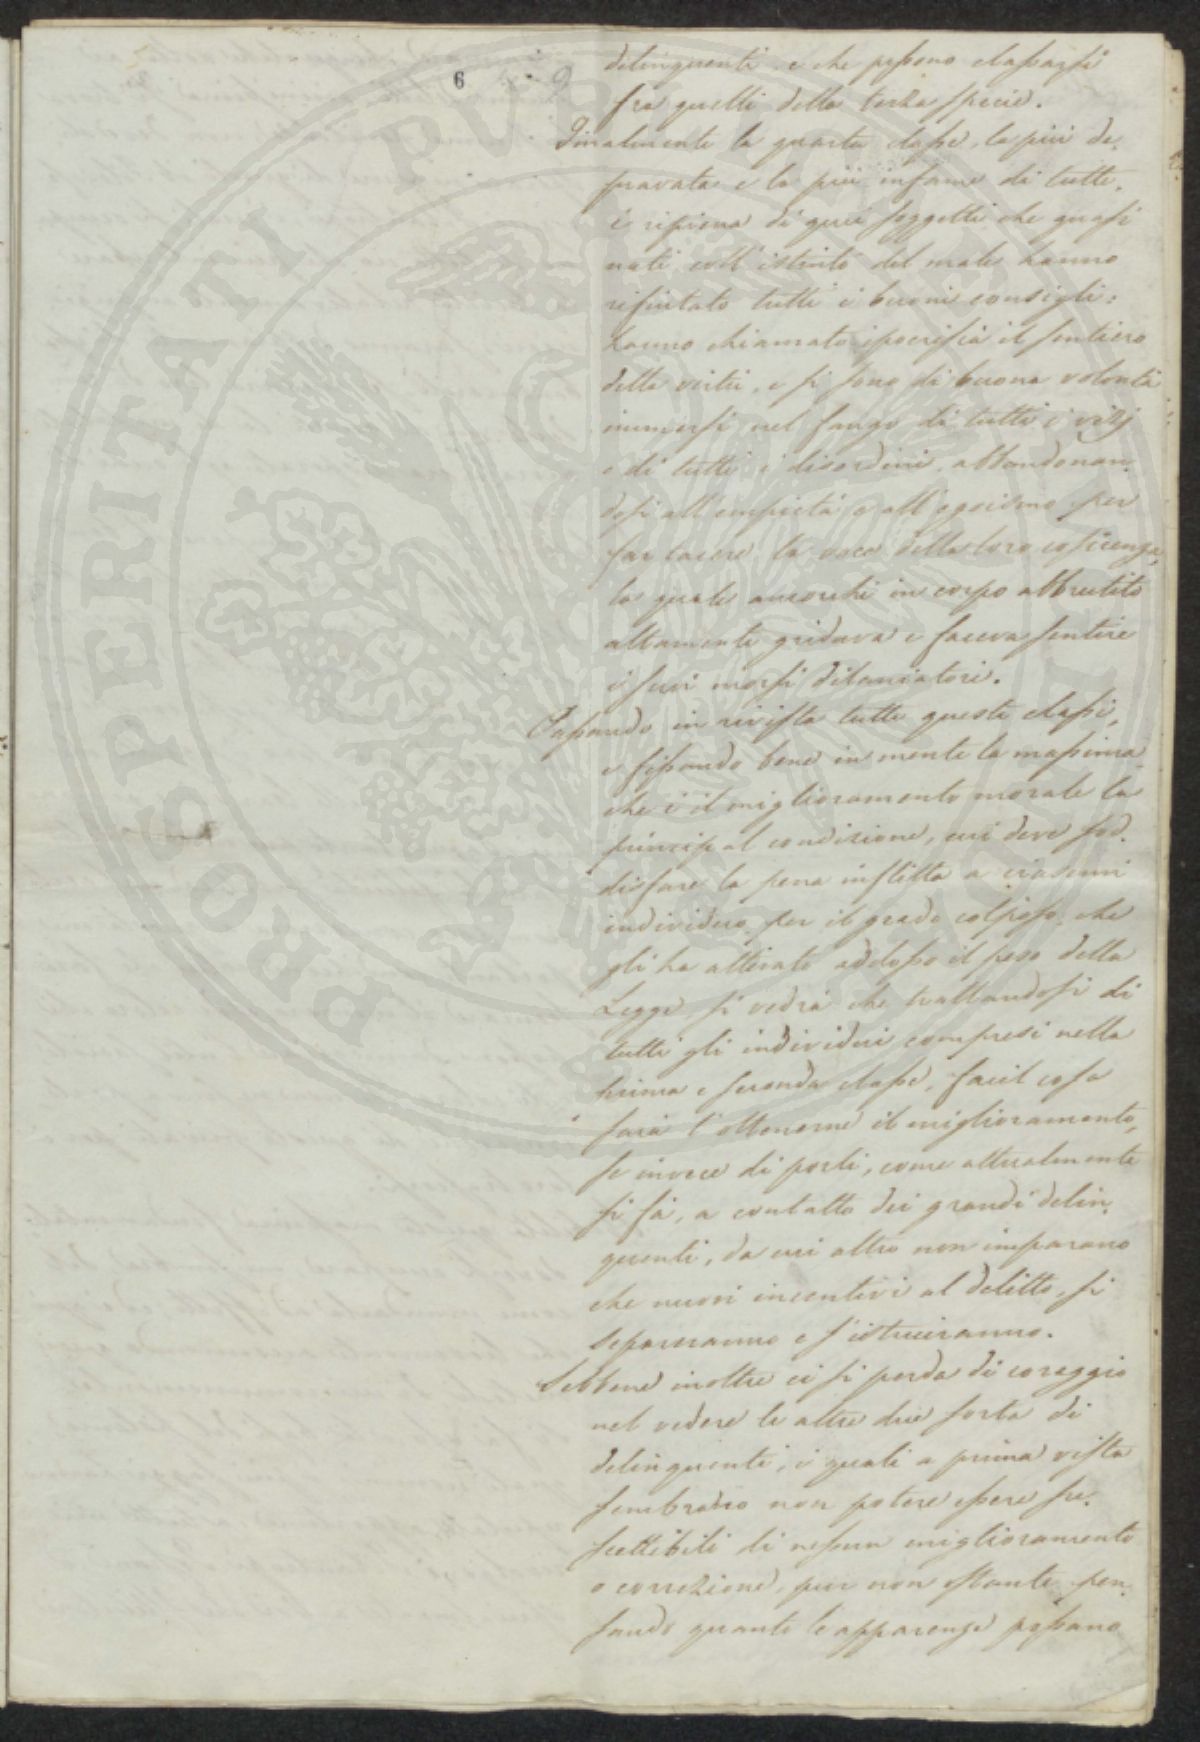 6
9
delinquenti, e che possono classarsi
fra quelli della terza specie.
Finalmente la quarta classe, la più de,
pravata e la più infame di tutte,
è ripiena di quei soggetti che quasi
nati coll'istinto del male hanno
rifiutato tutti i buoni consigli:
hanno chiamato ipocrisia il sentiero
della virtù, e si sono di buona volontà
immersi nel fango di tutti i vizj
e di tutti i disordini, abbandonan,
dosi all'empietà e all'egoismo per
far tacere la voce della loro coscienza,
la quale ancorchè in corpo abbrutito
altamente gridava e faceva sentire
i suoi morsi dilaniatori.
Passando in rivista tutte queste classi,
e fissando bene in mente la massima
che è il miglioramento morale la
principal condizione, cui deve sod,
disfare la pena inflitta a ciascun
individuo per il grado colposo, che
gli ha attirato addosso il peso della
Legge si vedrà che trattandosi di
tutti gli individui compresi nella
prima e seconda classe, facil cosa
sarà l'ottenerne il miglioramento,
se invece di porli, come attualmente
si fà, a contatto dei grandi delin,
quenti, da cui altro non imparano
che nuovi incentivi al delitto, si
separeranno e s'istruiranno.
Sebbene inoltre ci si perda di coraggio
nel vedere le altre due sorta di
delinquenti, i quali a prima vista
sembrano non potere essere su,
scettibili di nessun miglioramento
o correzione, pur non ostante pen,
sando quanto le apparenze possano
PROSPERITATI PUBLICAE